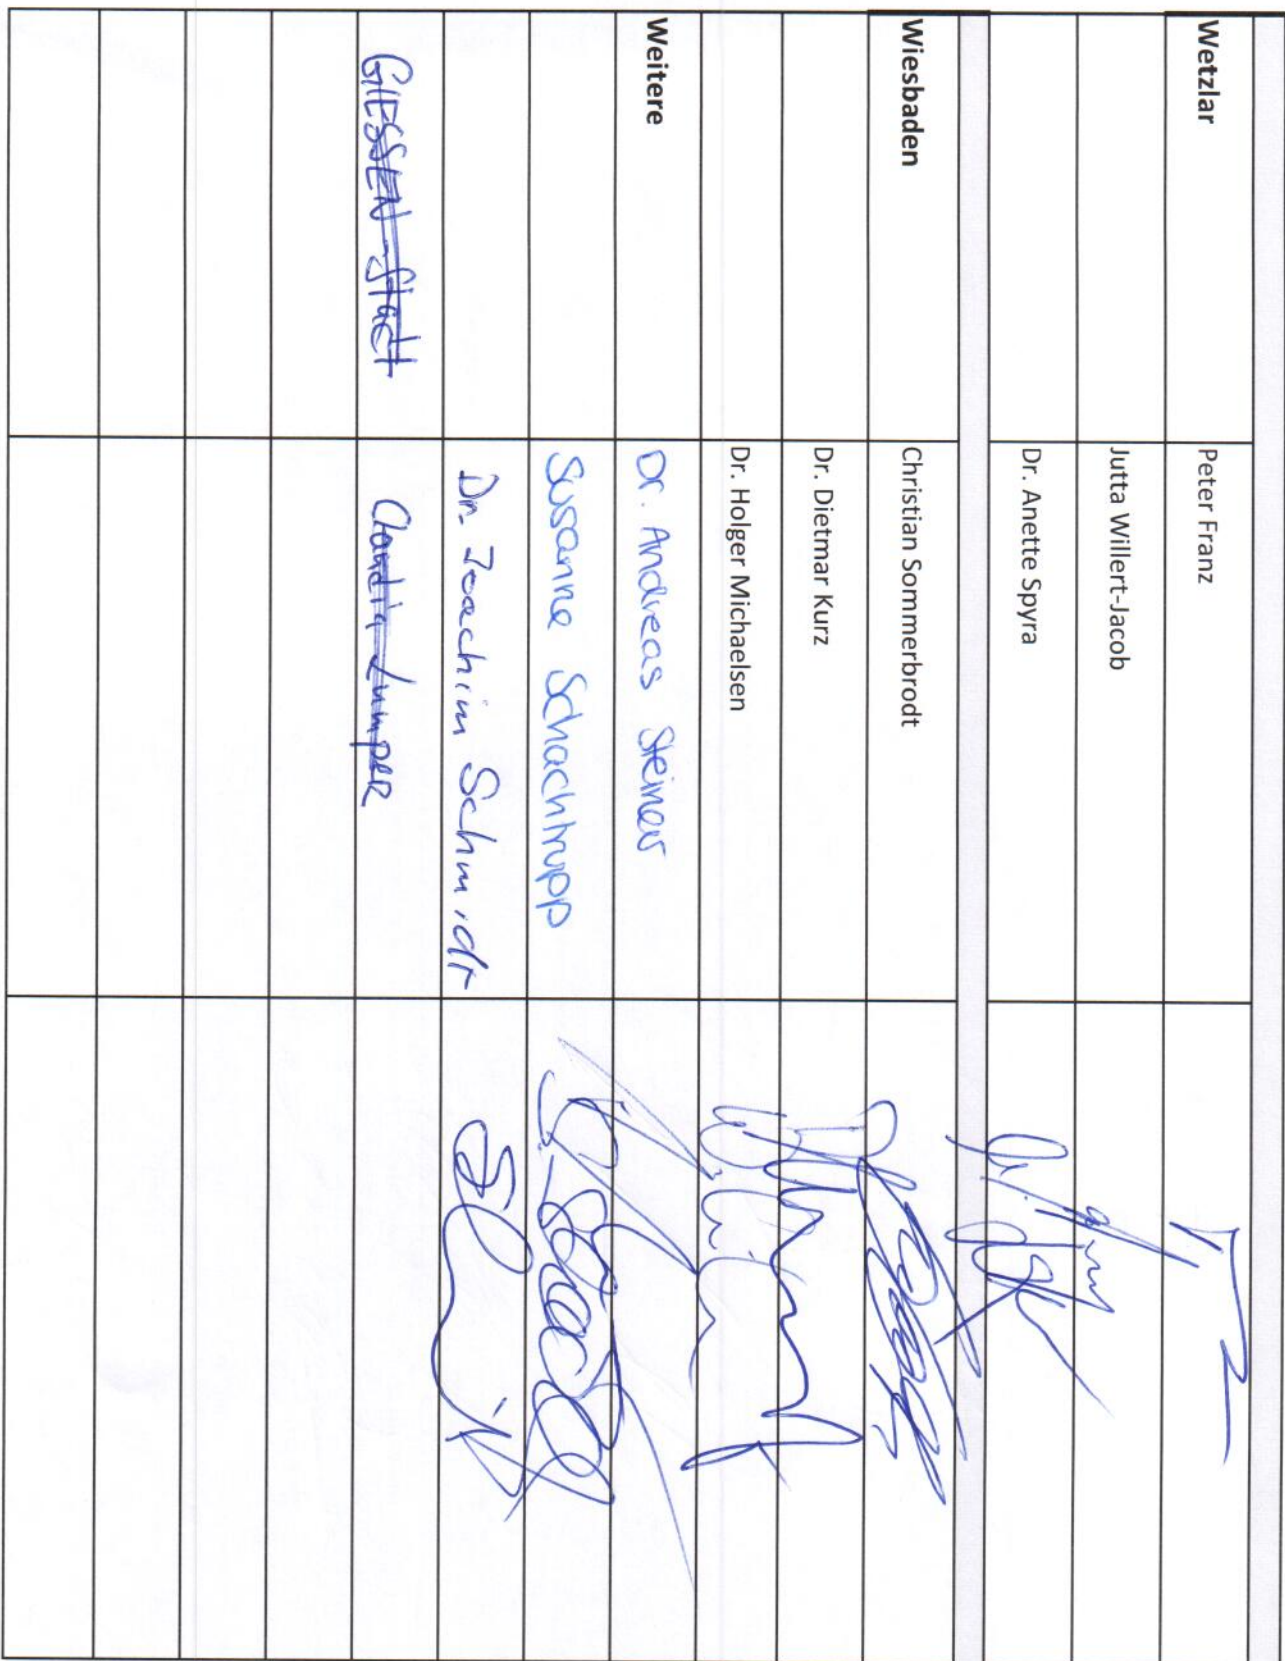 Wetzlar Peter Franz
Jutta Willert-Jacob
Dr. Anette Spyra
Wiesbaden Christian Sommerbrodt
Dr. Dietmar Kurz
Dr. Holger Michaelsen
Weitere Dr. Andreas Steiner
Susanne Schachtrupp
Dr. Joachim Schmidt
GIESSEN-Stadt Claudia